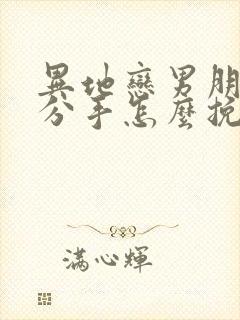 異地戀男朋
分手怎麼挽
滿心輝